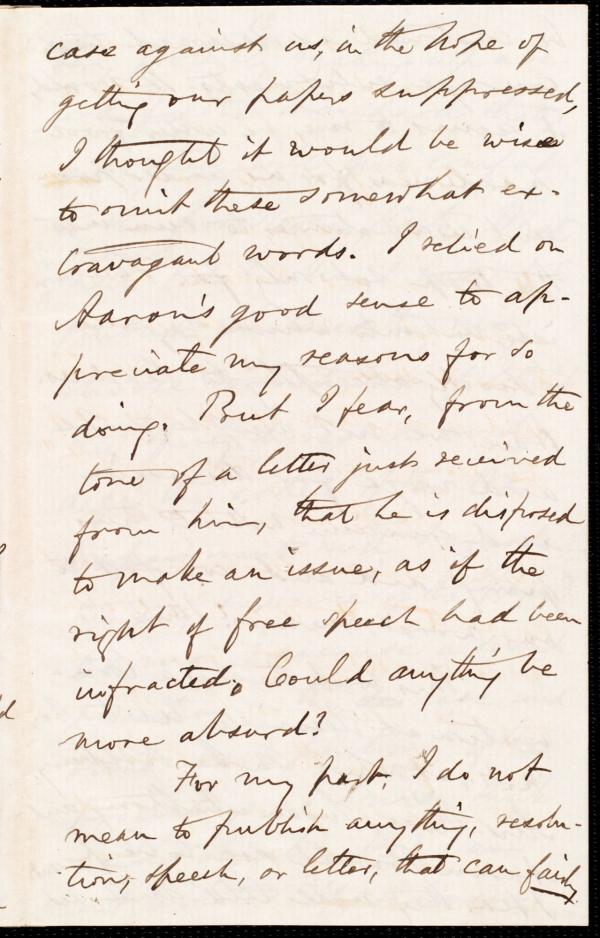 case against us, in the hope of
getting our papers suppressed,
I thought it would be wise
to omit these somewhat ex-
travagant words. I relied on
Aaron's good sense to ap-
preciate my reasons for so
doing. But I fear, from the
tone of a letter just received
from him, that he is disposed
to make an issue, as if the
right of free speech had been
infracted. Could anything be
more absurd?
For my part, I do not
mean to publish anything, resolu-
tion, speech, or letter, that can fairly